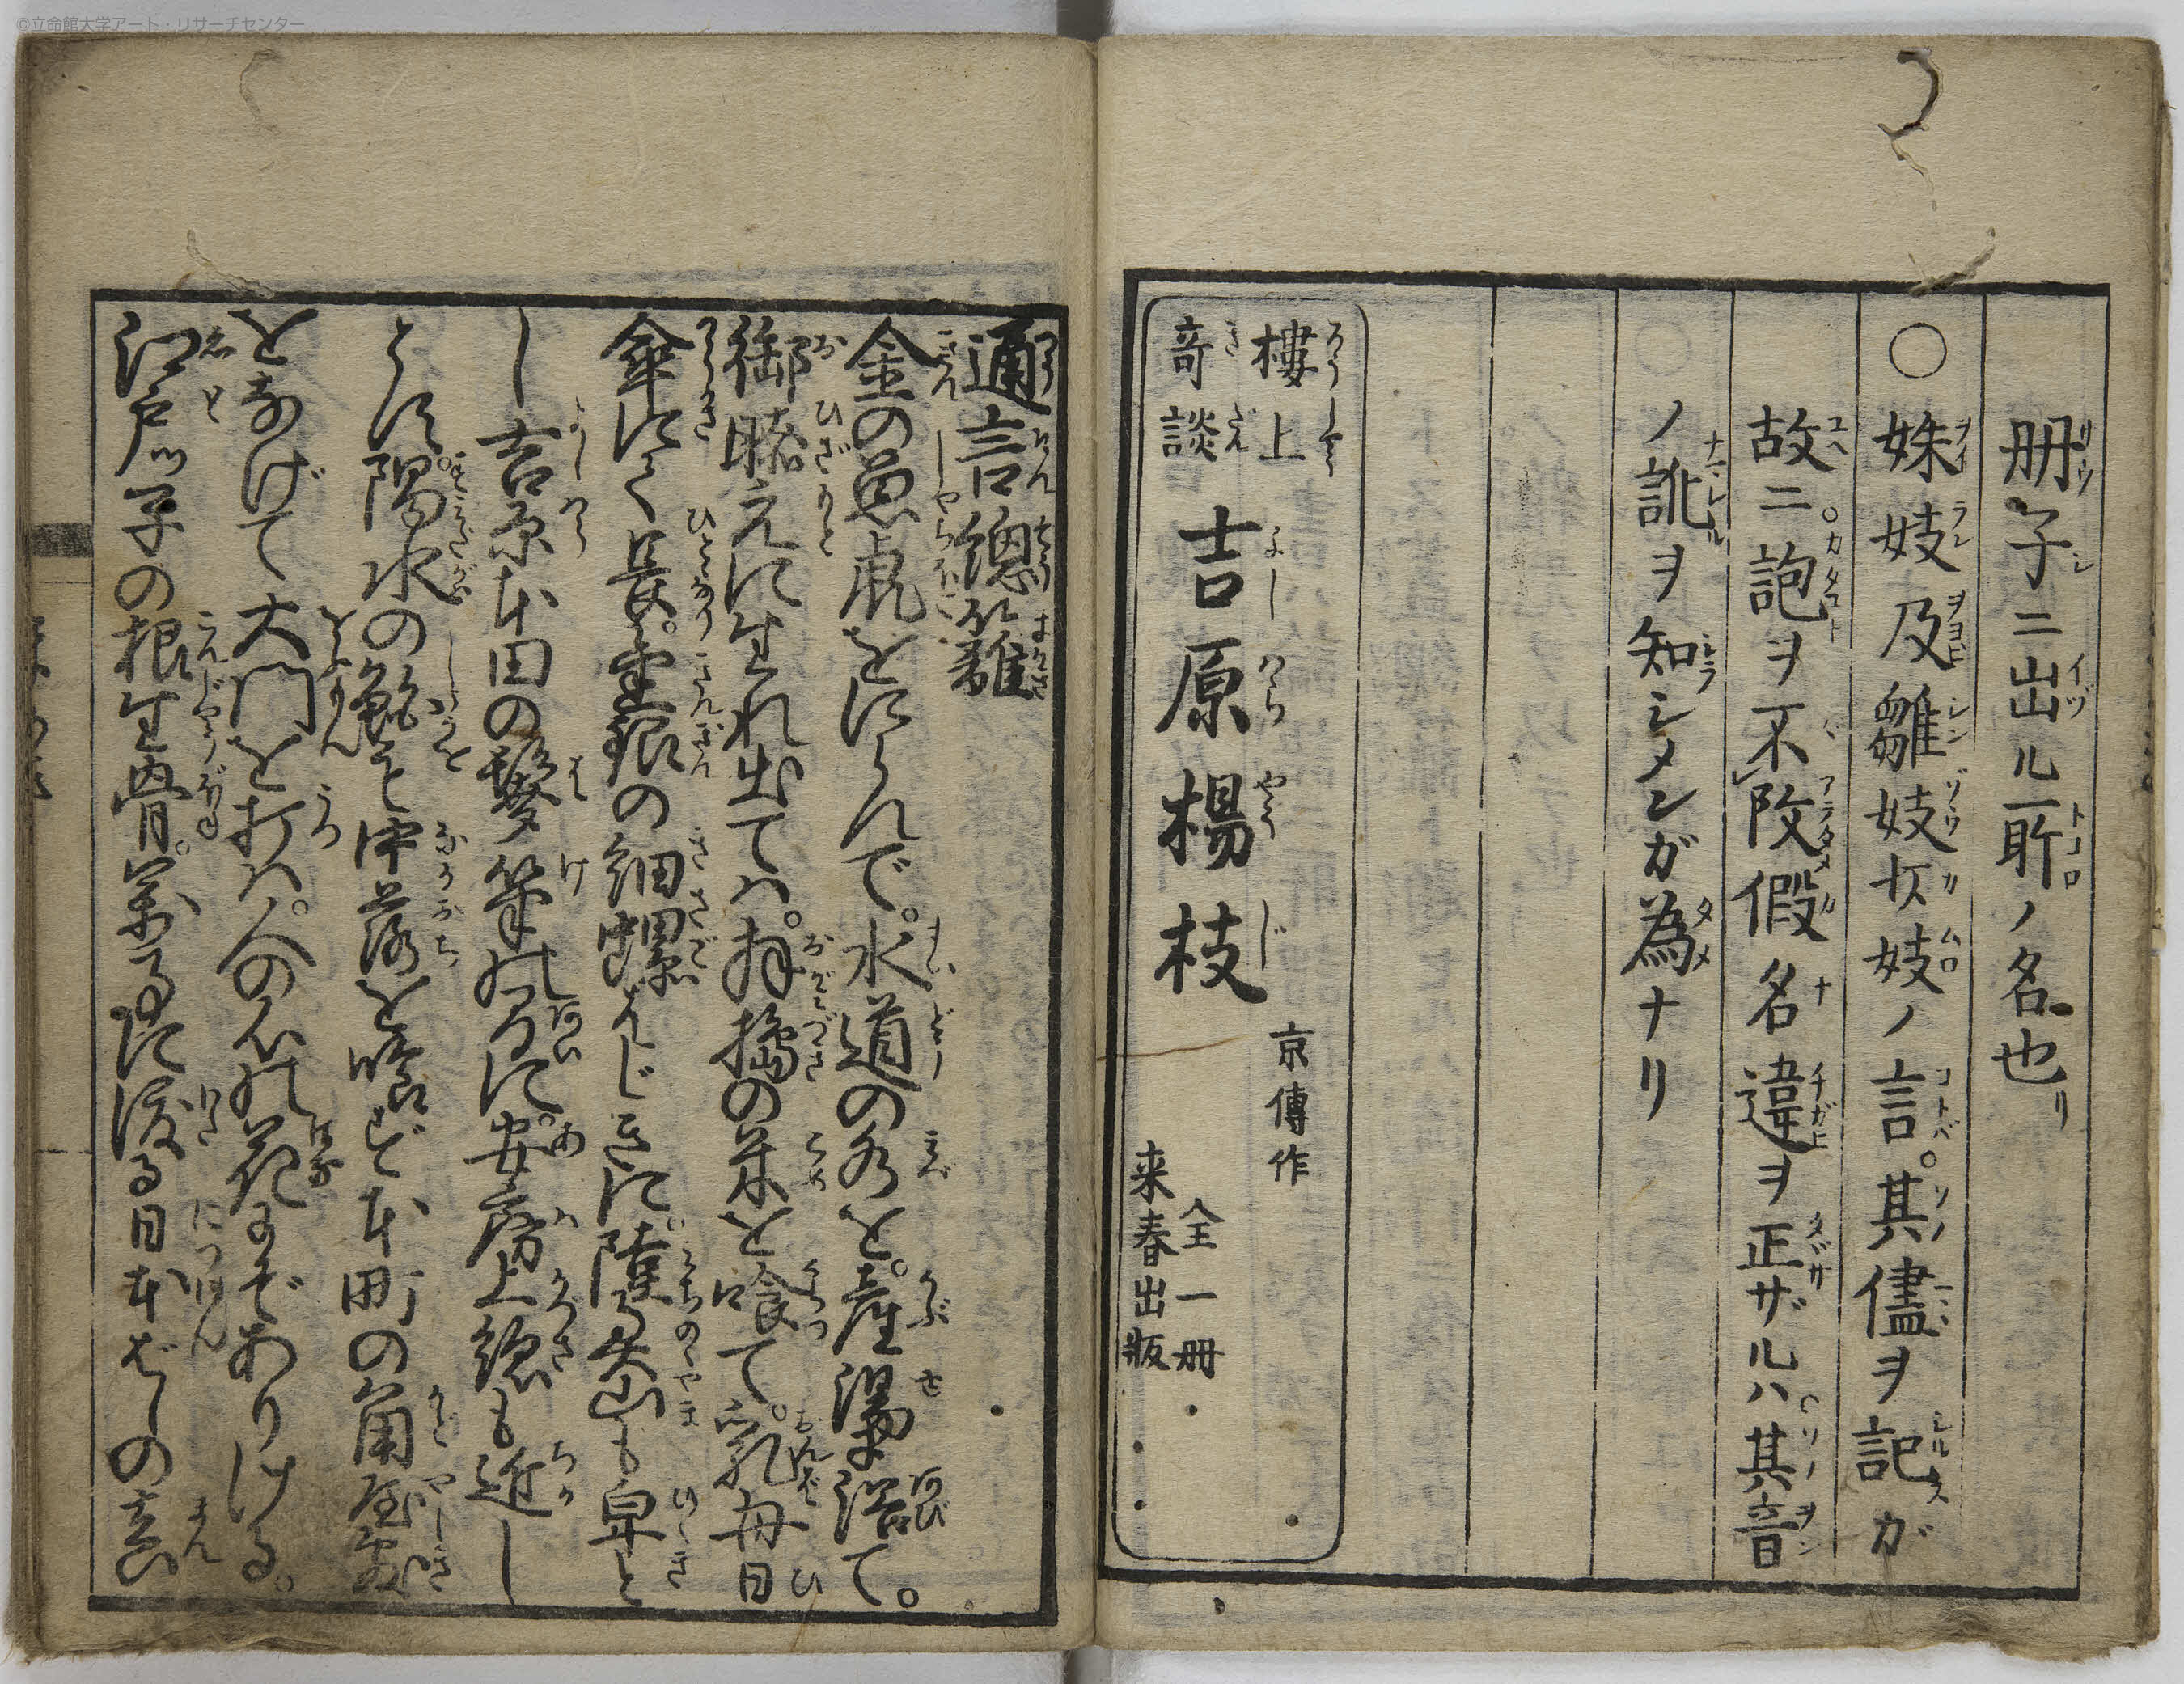 ©立命館大学アート・リサーチセンター
冊子ニ出ル所ノ名也
○姝妓及雛妓𠀋妓ノ言。其儘ヲ記ガ
故ニ訑ヲ不改假名違ヲ正ザルハ其音
ノ訛ヲ知シメンガ為ナリ
樓上
奇談
吉原楊枝
京傳作
全一冊
来春出版
通言總籬
金の魚虎をにらんで。水道の水を。産湯に浴て。
御膝元に生れ出ては。拝搗の米を喰て。乳母日
傘にて長。金銀の細螺はじきに。陸奥山も卑と
し。吉原本田の髩筆の間に。安房上総も近し
とす。隅水の鮊も中落を喰ず。本町の角屋敷
をなげて大門を打は。人の心の花にぞありける。
江戸ッ子の根生骨。萬事に渡る日本ばしの真